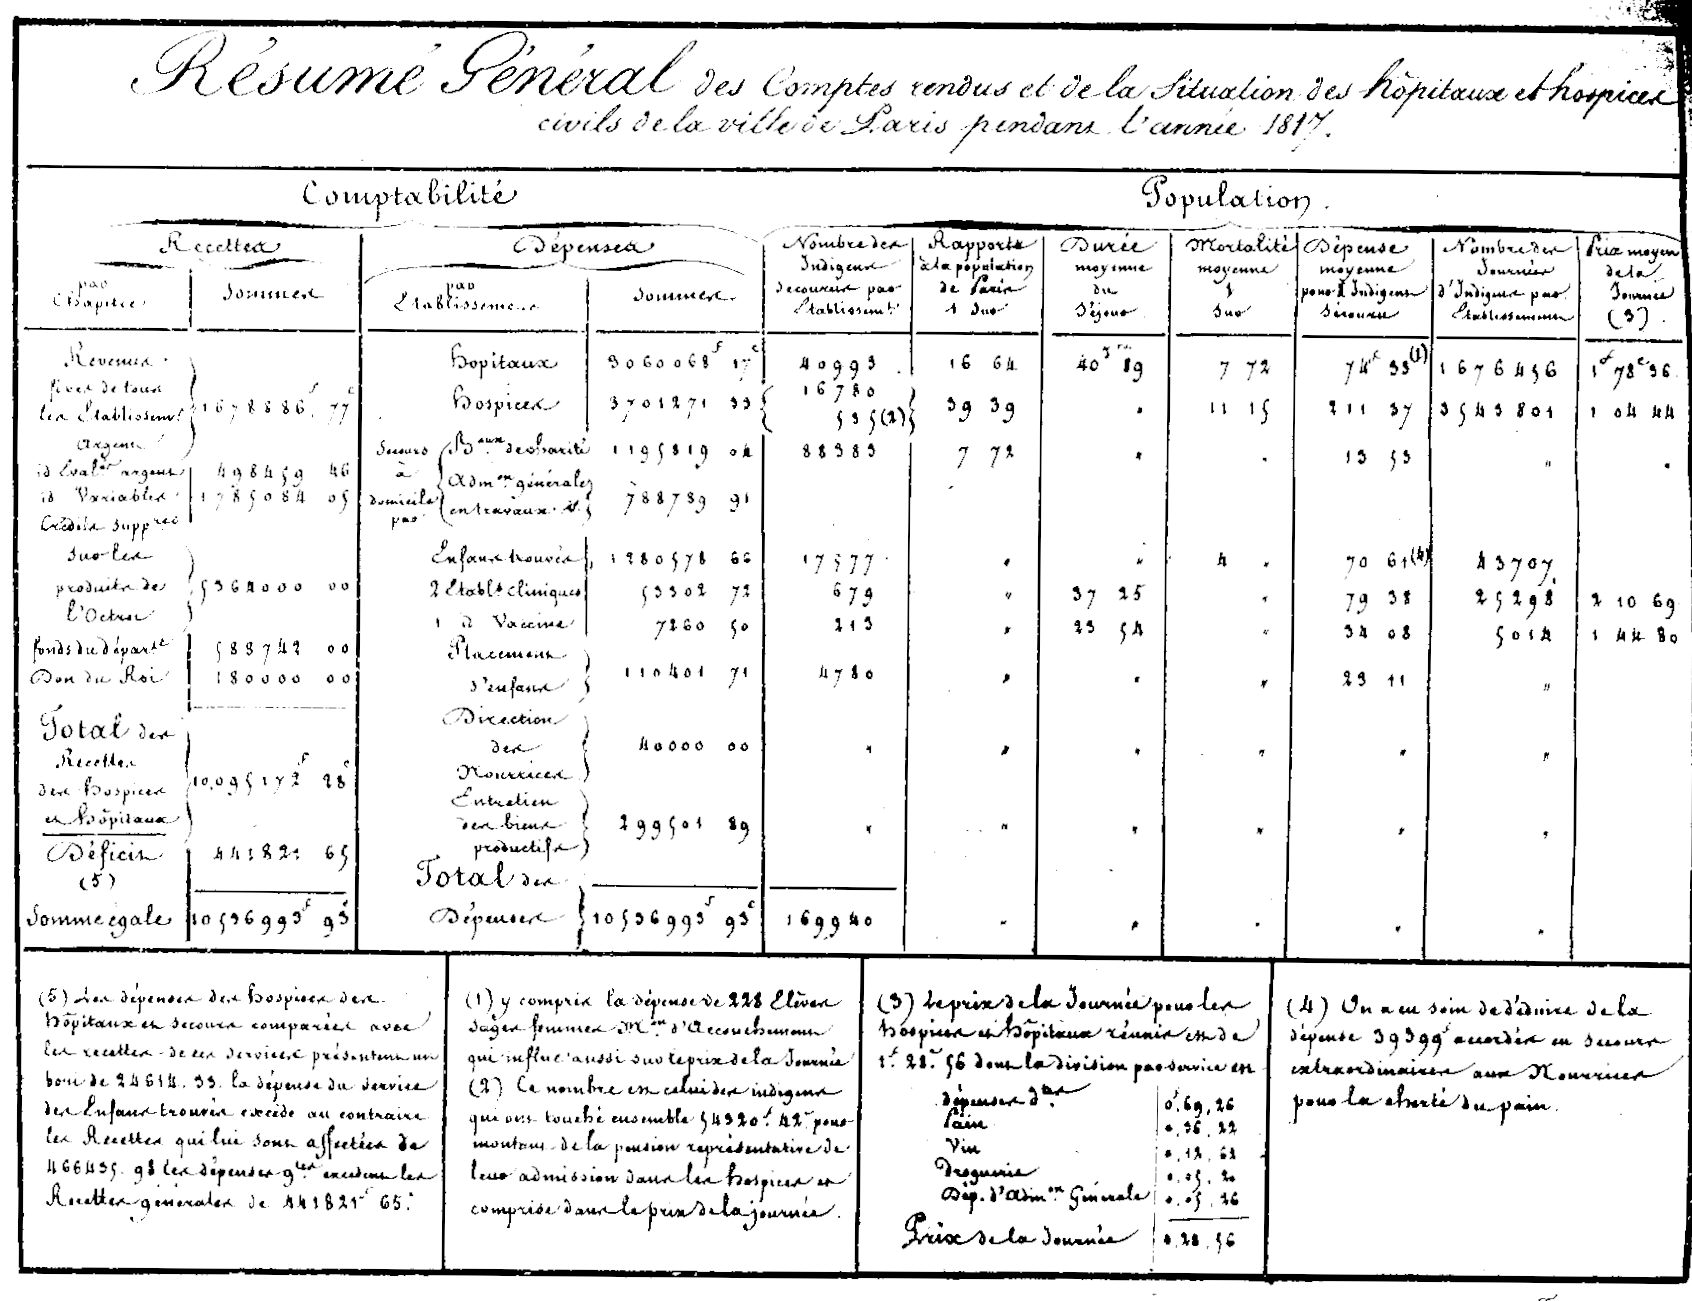 Résumé Général des Comptes rendus et de la Situation des hôpitaux et hospices
civils de la ville de Paris pendant l'année 1817.
Comptabilité Population.
Recettes Dépenses
par Chapitre Sommes par Etablissement Sommes
Nombre des Indigens secourus par Etablissemt
Rapports à la population de Paris 1 sur
Durée moyenne du Séjour
Mortalité moyenne 1 sur
Dépense moyenne pour 1 Indigent Secouru
Nombre des Journées d'Indigens par Etablissement
Prix moyen de la Journée (3).
Revenus
fixes de tous
les Etablissemts 1678886f 77c
Argent
id Evalés argent 498459 46
id Variables 1785084 05
Crédits suppres
sur les
produits de 5364000 00
l'Octroi
fonds du départt 588742 00
Don du Roi 180000 00
Total des
Recettes
des hospices 10,095172f 28c
et hôpitaux
Déficit 441821 65
(5)
Somme égale 10536993f 93c
hopitaux 3060068f 17c 40993 16 64 40jrs 89 7 72 74f 33(1) 1676456 1f 78c 36
hospices 3701271 33 16780 535(2) 39 39 " 11 15 211 37 3543801 1 04 44
Secours à domicile par
Baux de charité 1195819 04 88383 7 72 " " 13 53 " "
Admon générale en travaux &. 788789 91
Enfans trouvés 1280578 66 17577 " " 4 " 70 61(4) 43707
2 Etablts cliniques 53302 72 679 " 37 25 " 79 38 25298 2 10 69
1 id Vaccine 7260 50 213 " 23 54 " 34 08 5014 1 44 80
Placement
d'enfans 110401 71 4780 " " " 23 11 "
Direction
des 40000 00 " " " " " "
Nourrices
Entretien
des biens 299501 89 " " " " " "
productifs
Total des
Dépenses 10536993f 93c 169940 " " " " "
(5) Les dépenses des hospices des
hôpitaux et secours comparées avec
les recettes de ces services présentent un
boni de 24614. 33. la dépense du service
des Enfans trouvés excède au contraire
les Recettes qui lui sont affectées de
466435. 98 les dépenses gles excèdent les
Recettes générales de 441821f 65c
(1) y compris la dépense de 228 Elèves
sages femmes Mon d'Accouchement
qui influe aussi sur le prix de la Journée
(2) Ce nombre est celui des indigens
qui ont touché ensemble 54320f 42c pour
montant de la pension représentative de
leur admission dans les hospices et
comprise dans le prix de la journée.
(3) Le prix de la Journée pour les
hospices et hôpitaux réunis est de
1f 28c 56 dont la division par service est
dépenses dres 0f. 69. 26
Pain 0. 36. 22
Vin 0. 12. 62
Droguerie 0. 05. 20
Dép. d'Admon Générale 0. 05. 26
Prix de la Journée 1. 28. 56
(4) On a eu soin de déduire de la
dépense 39399f accordés en secours
extraordinaires aux Nourrices
pour la cherté du pain.